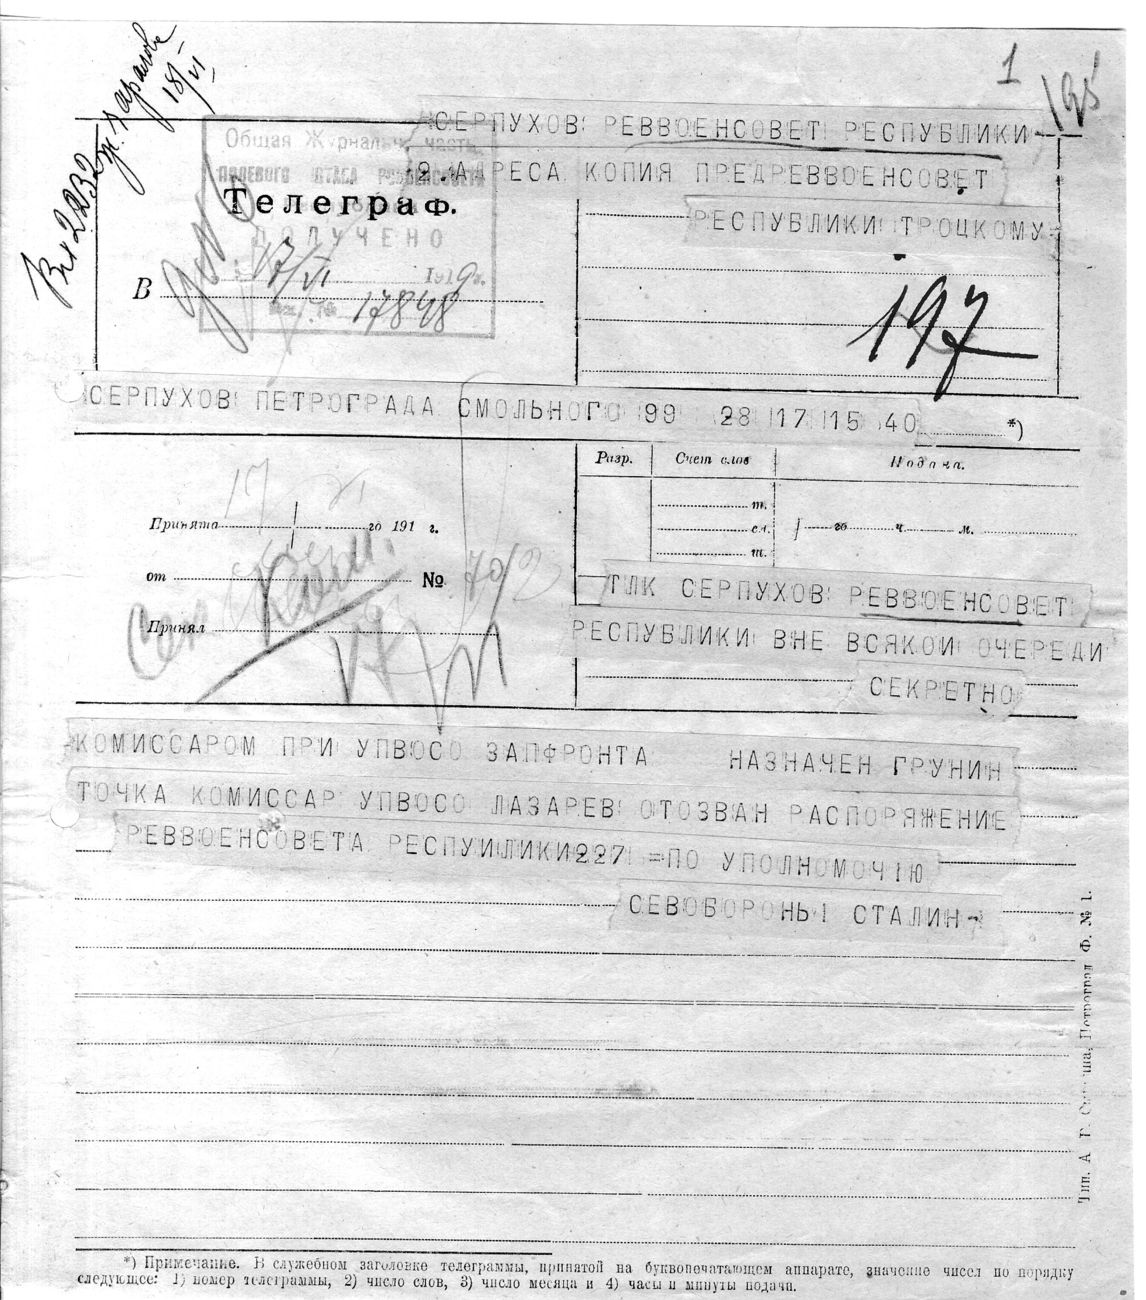 1
195
Вх 2232
18/VI
СЕРПУХОВ РЕВВОЕНСОВЕТ РЕСПУБЛИКИ
2 АДРЕСА КОПИЯ ПРЕДРЕВВОЕНСОВЕТ
РЕСПУБЛИКИ ТРОЦКОМУ-
Общая Журнальн. часть
ПОЛЕВОГО ШТАБА РЕВВОЕНСОВЕТА
Телеграф.
ПОЛУЧЕНО
17/VI 1919г.
В
Вх. № 17848
197
СЕРПУХОВ ПЕТРОГРАДА СМОЛЬНОГО 99 28 17 15 40 *)
Разр. Счет слов Подана.
Принята го 191 г.
т.
сл. го ч. м.
т.
от №
Принял
ТЛК СЕРПУХОВ РЕВВОЕНСОВЕТ
РЕСПУБЛИКИ ВНЕ ВСЯКОИ ОЧЕРЕДИ
СЕКРЕТНО
-КОМИССАРОМ ПРИ УПВОСО ЗАПФРОНТА НАЗНАЧЕН ГРУНИН
ТОЧКА КОМИССАР УПВОСО ЛАЗАРЕВ ОТОЗВАН РАСПОРЯЖЕНИЕ
РЕВВОЕНСОВЕТА РЕСПУИЛИКИ227 =ПО УПОЛНОМОЧIЮ
СЕВОБОРОНЫ СТАЛИН-
Тип. А Г. Петроград Ф. № 1.
*) Примечание. В служебном заголовке телеграммы, принятой на буквопечатающем аппарате, значение чисел по порядку
следующее: 1) номер телеграммы, 2) число слов, 3) число месяца и 4) часы и минуты подачи.